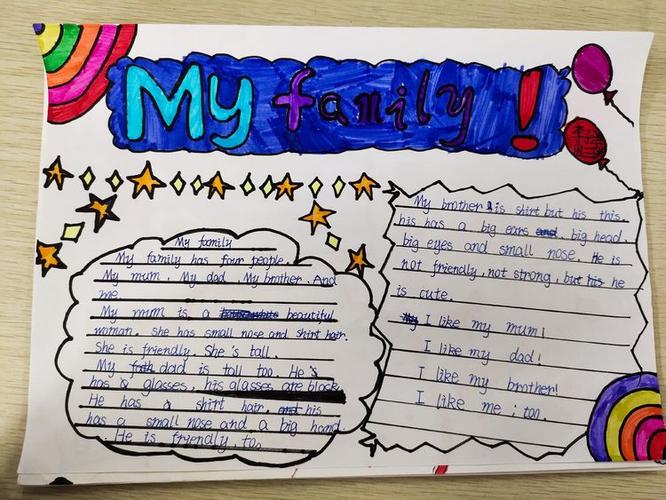 My family !
My family
My family has four people.
My mum, My dad, My brother. And
me.
My mum is a beautiful
woman, she has small nose and shirt hair.
She is friendly. She's tall.
My dad is tall too. He's
has a glasses, his glasses are black.
He has a shirt hair, his
has a small nose and a big hand
. He is friendly to.
My brother is shirt but his this.
his has a big ears big head.
big eyes and small nose. He is
not friendly, not strong, but he
is cute.
I like my mum!
I like my dad!
I like my brother!
I like me, too.